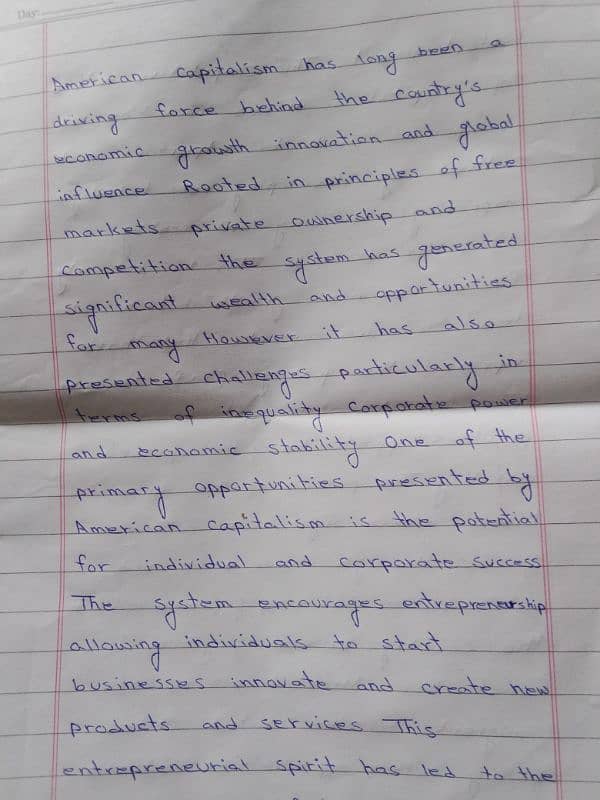 Day:
American capitalism has long been a
driving force behind the country's
economic growth innovation and global
influence Rooted in principles of free
markets private ownership and
competition the system has generated
significant wealth and opportunities
for many However it has also
presented challenges particularly in
terms of inequality corporate power
and economic stability One of the
primary opportunities presented by
American capitalism is the potential
for individual and corporate success
The system encourages entrepreneurship
allowing individuals to start
businesses innovate and create new
products and services This
entrepreneurial spirit has led to the